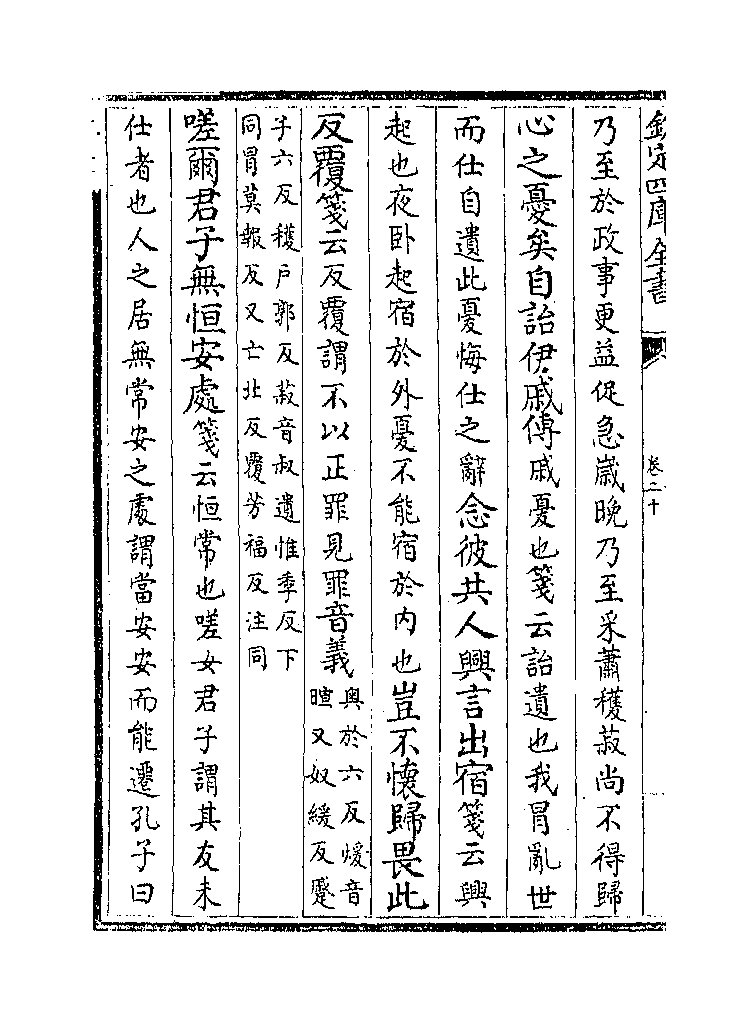 欽定四庫全書
卷二十
乃至於政事更益促急歲晚乃至采蕭穫菽尚不得歸
心之憂矣自詒伊戚傳戚憂也箋云詒遺也我冒亂世
而仕自遺此憂悔仕之辭念彼共人興言出宿箋云興
起也夜卧起宿於外憂不能宿於内也豈不懷歸畏此
反覆箋云反覆謂不以正罪見罪音義
奥於六反煖音
暄又奴緩反蹙
子六反穫戸郭反菽音叔遺惟季反下
同冒莫報反又亡北反覆芳福反注同
嗟爾君子無恒安處箋云恒常也嗟女君子謂其友未
仕者也人之居無常安之處謂當安安而能遷孔子曰